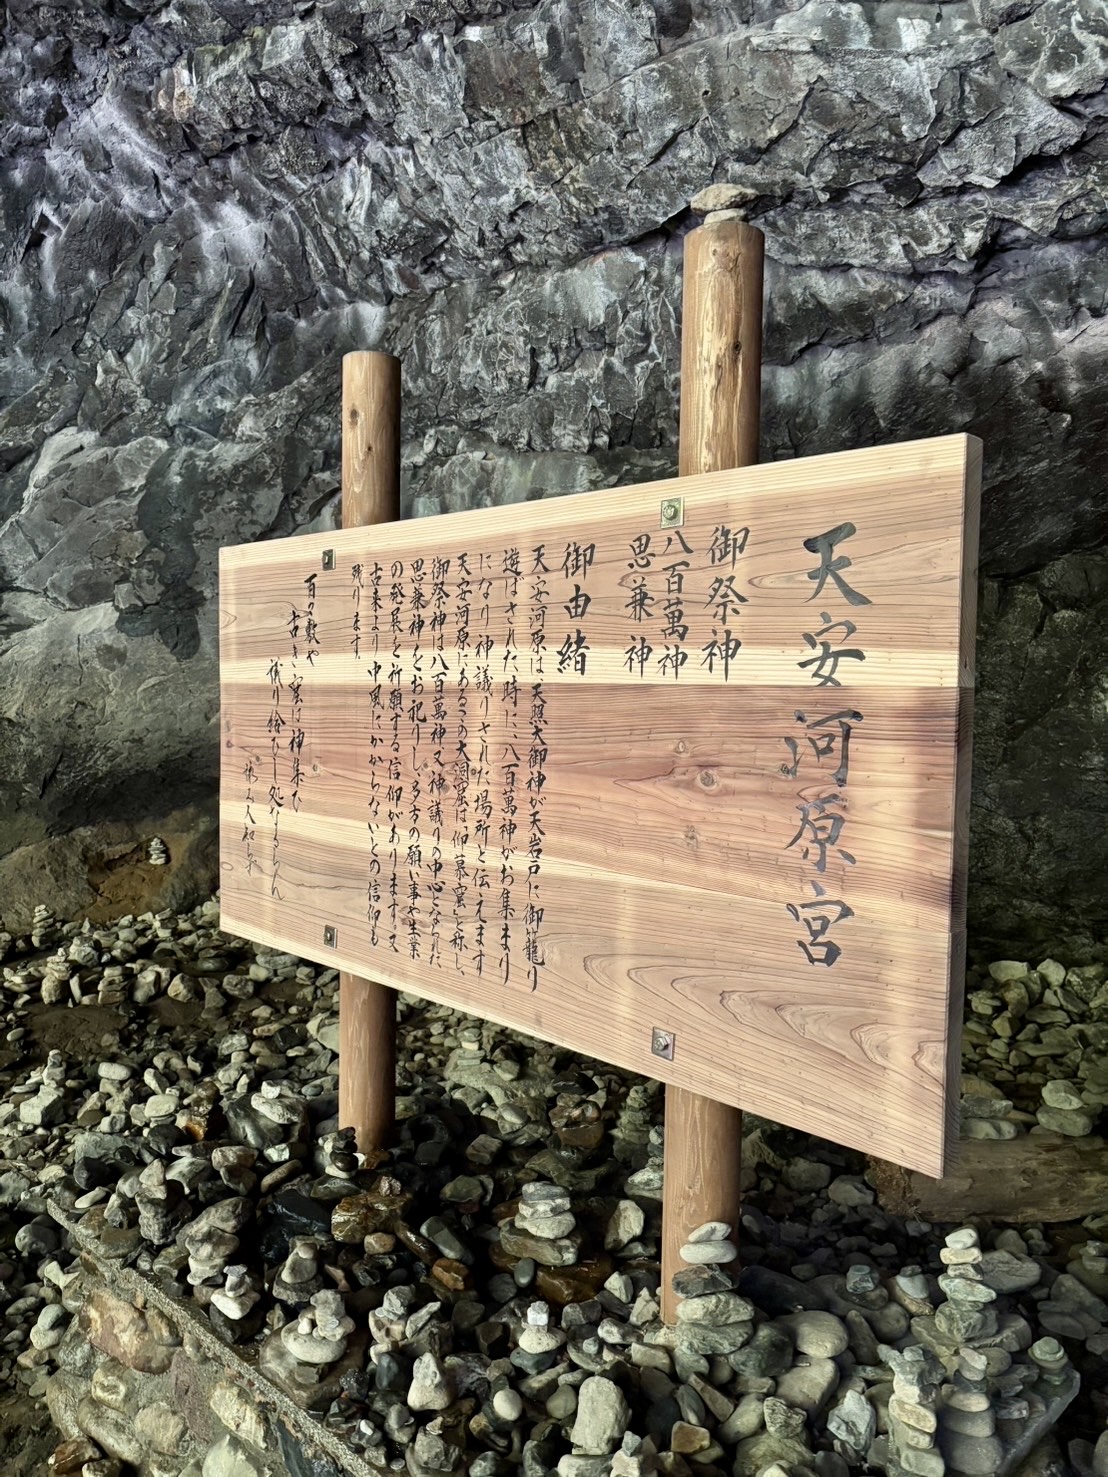 天安河原宮
御祭神
八百萬神
思兼神
御由緒
天安河原は、天照大御神が天岩戸に御籠り
遊ばされた時に、八百萬神がお集まり
になり神議りされた場所と伝えます
天安河原にあるこの大洞窟は、「仰慕窟」と称し、
御祭神は八百萬神又神議りの中心となられた
思兼神をお祀りし、多方の願い事や生業
の発展を祈願する信仰があります。又
古来より中風にかからないとの信仰も
残ります。
百の敷や
古き窟は神集ひ
議り給ひし処なるらん